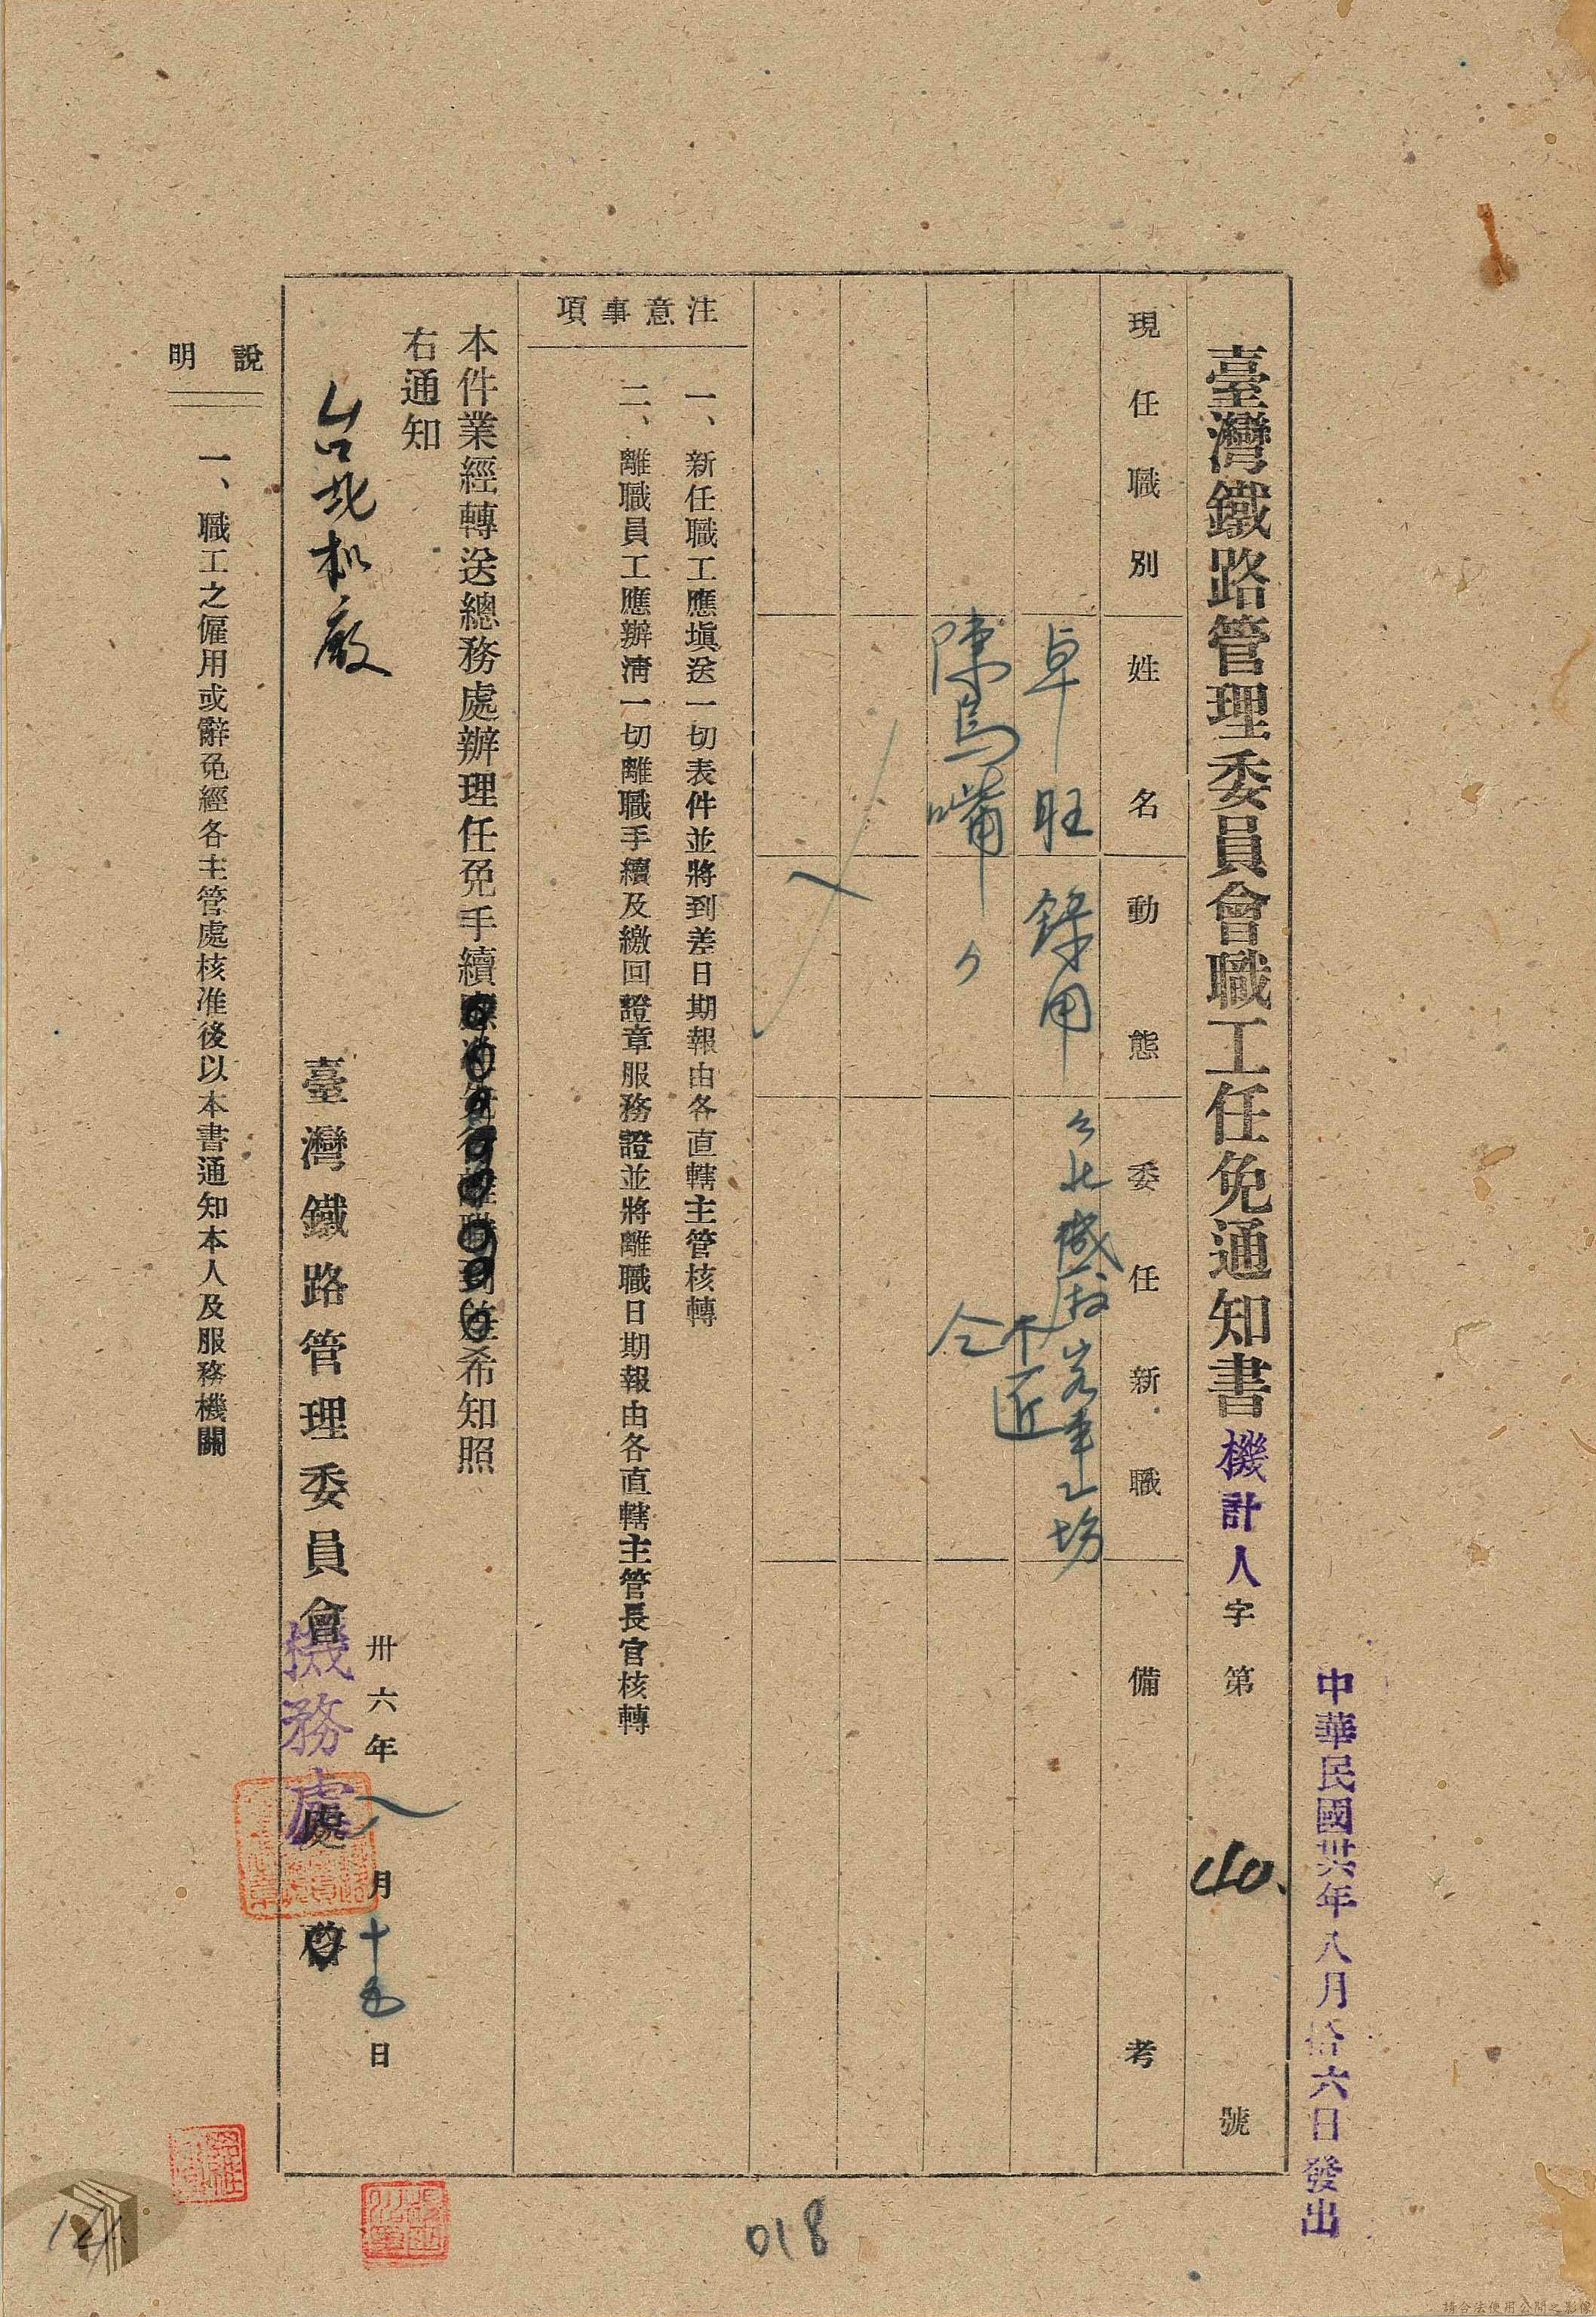 中華民國卅六年八月拾六日發出
臺灣鐵路管理委員會職工任免通知書 機計人字第 40. 號
現任職別 姓名 動態 委任新職 備考
卓旺 錄用 台北機廠客車工場
木匠
陳烏嘴 〃 仝
注意事項
一、新任職工應塡送一切表件並將到差日期報由各直轄主管核轉
二、離職員工應辦淸一切離職手續及繳回證章服務證並將離職日期報由各直轄主管長官核轉
本件業經轉送總務處辦理任免手續 希知照
右通知
台北机廠
卅六年八月十五日
臺灣鐵路管理委員會機務處
說明
一、職工之僱用或辭免經各主管處核准後以本書通知本人及服務機關
018
請合法使用公開之影像